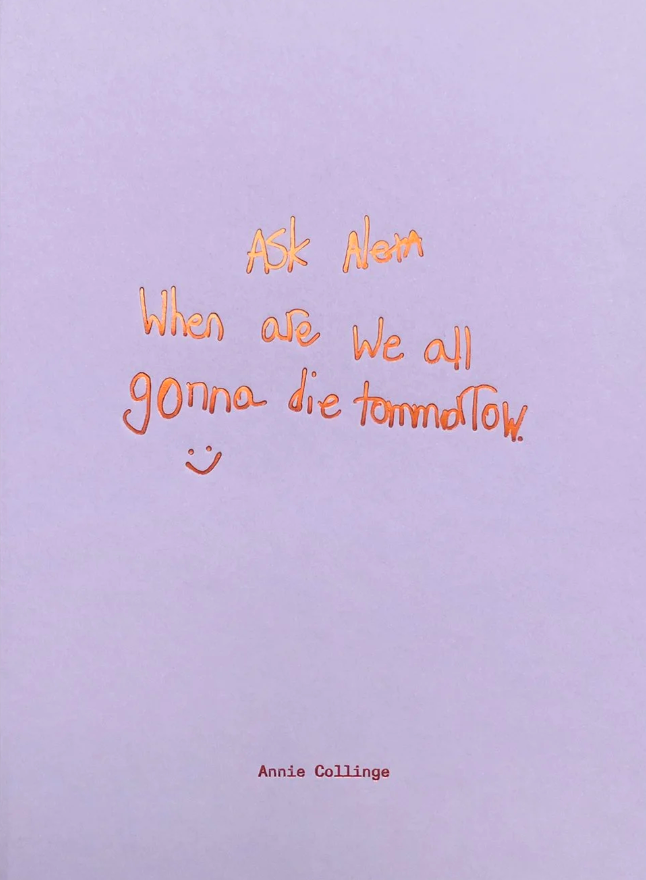 Ask
When are we all
gonna die tommorrow.
:)
Annie Collinge